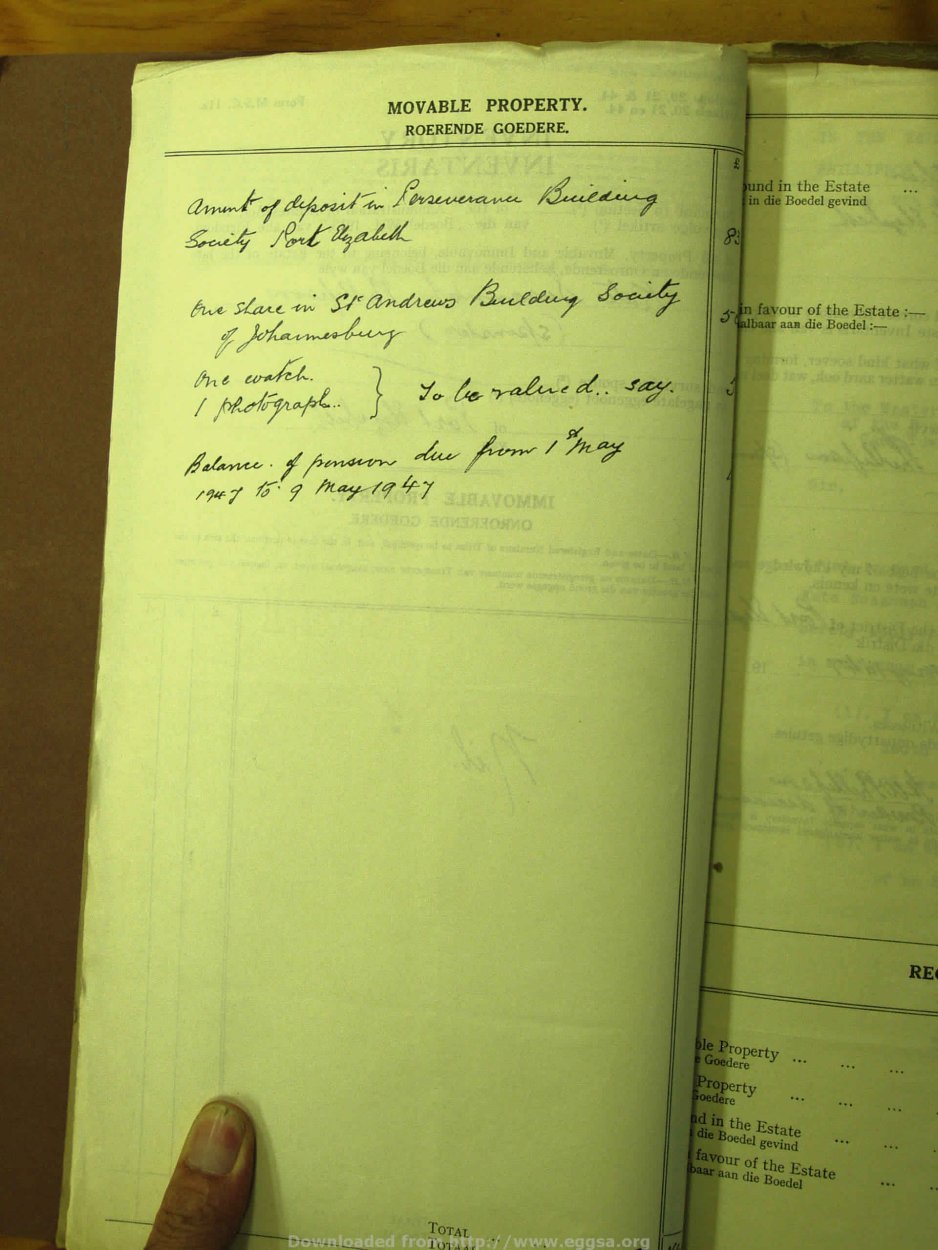 MOVABLE PROPERTY.
ROERENDE GOEDERE.
£
Amount of deposit in Perseverance Building
Society Port Elizabeth
One share in St Andrews Building Society
of Johannesburg
One watch.
1 photograph..
} To be valued.. say.
Balance of pension due from 1st May
1947 to 9 May 1947
TOTAL
TOTAAL
und in the Estate ...
in die Boedel gevind
in favour of the Estate :—
albaar aan die Boedel :—
RE
ble Property ... ... ...
Goedere
Property ... ... ...
Goedere
nd in the Estate ... ...
die Boedel gevind
favour of the Estate ...
baar aan die Boedel
Downloaded from http://www.eggsa.org